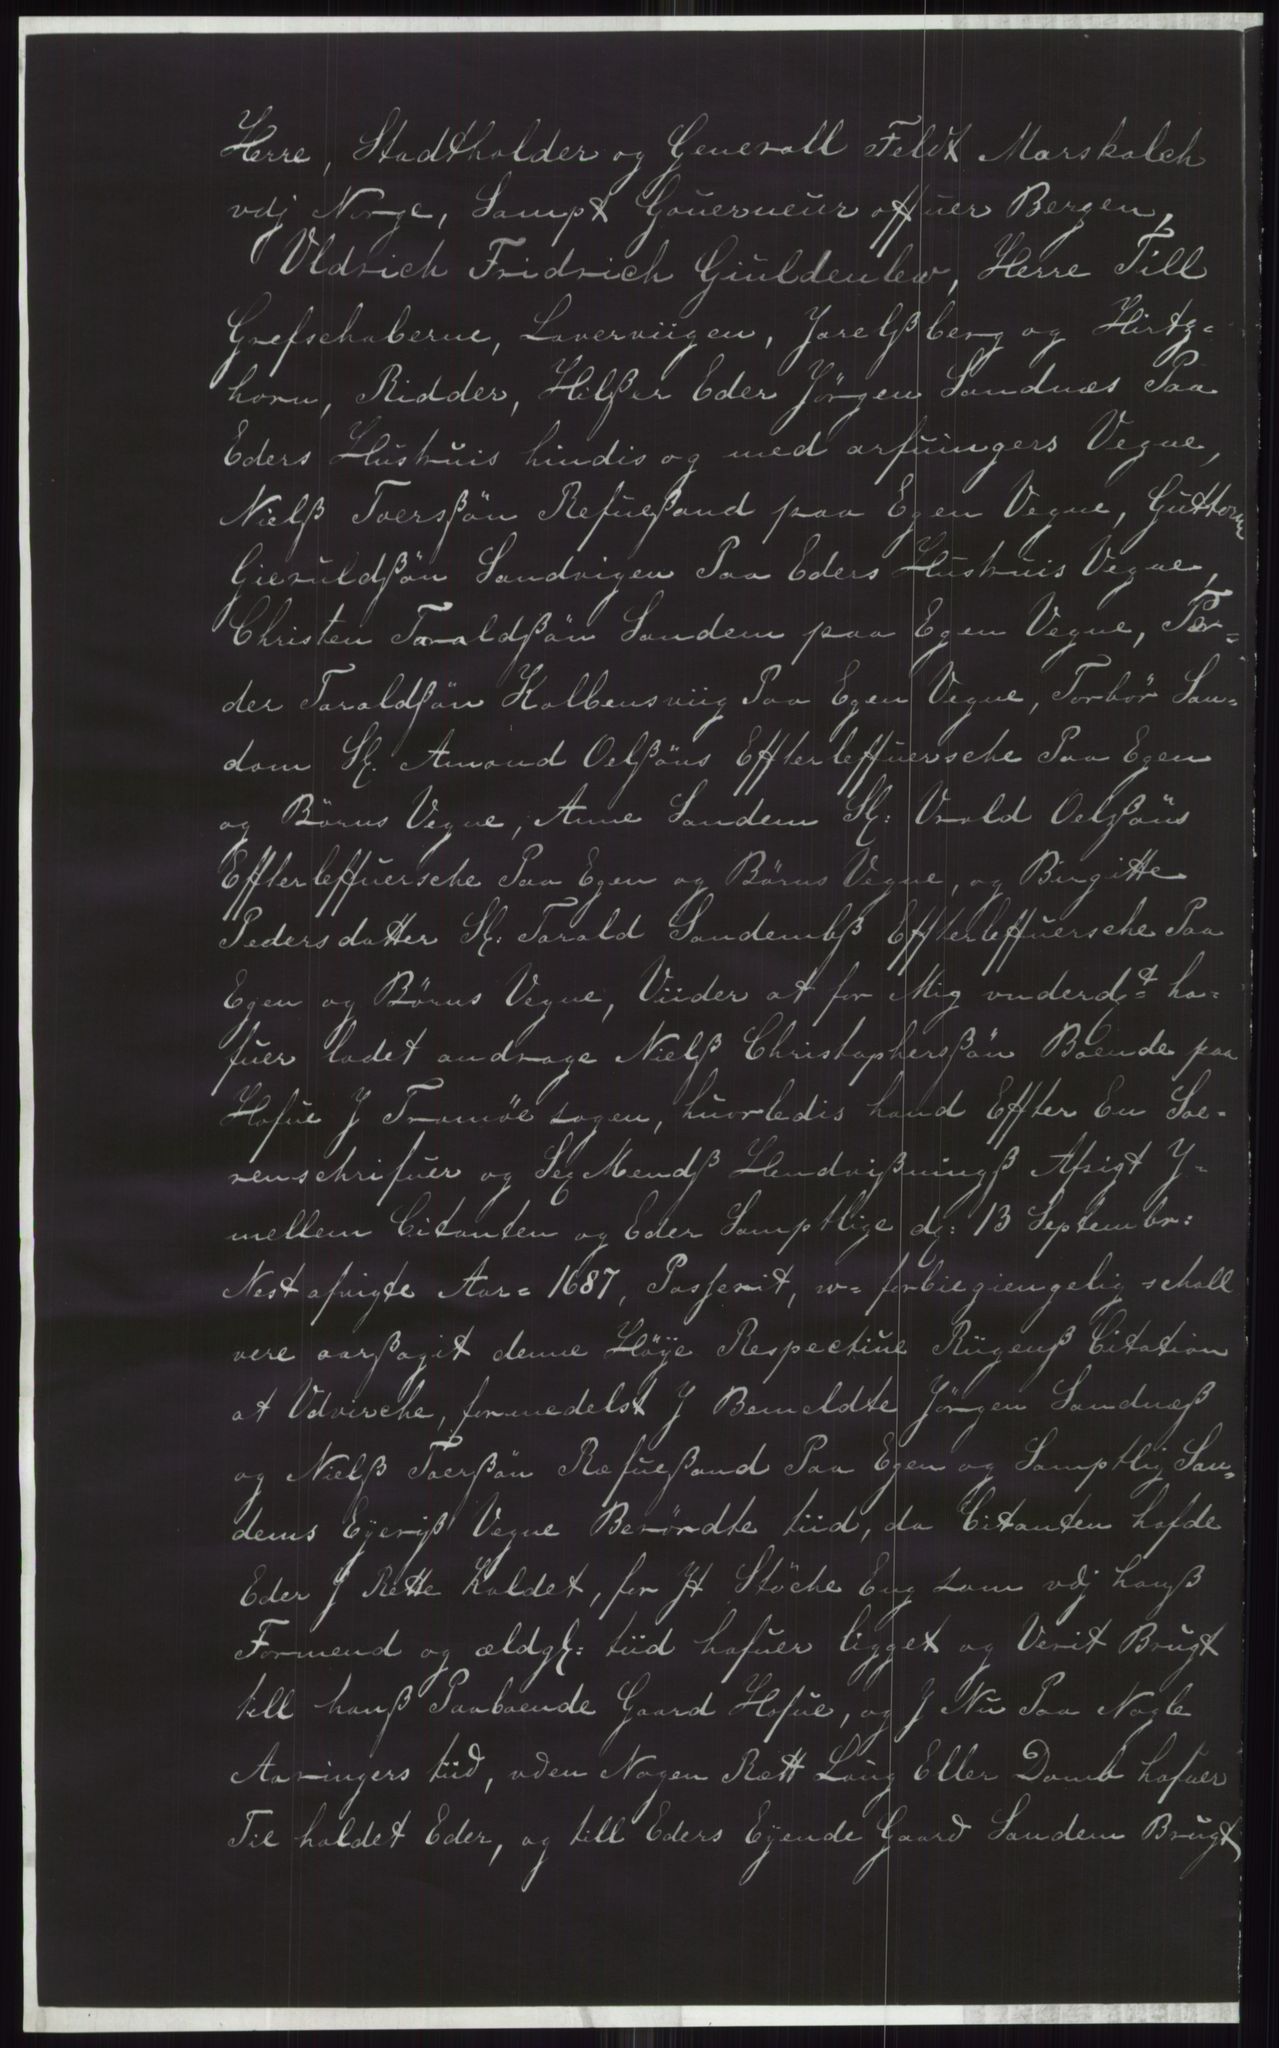 Herre, Stadtholder og Generall Feldt Marskalch
vdj Norge, Sampt Gouerneur offuer Bergen,
Vldrich Fridrich Giuldenlew, Herre Till
Grefschaberne, Laverviigen, Jarelßberg og Hirtz=
horn, Ridder, Hilßer Eder Jörgen Sandnes Paa
Eders Hustruis hindis og med arfuingers Vegne,
Nielß Toersßön Refueßand paa Egen Vegne, Guttorm
Gieruldßön Sandvigen Paa Eders Hustruis Vegne,
Christen Taraldßön Sandem paa Egen Vegne, Per=
der Taraldßön Kalbensviig Paa Egen Vegne, Torbör San=
dom Sl. Amond Oelßöns Effterleffuersche Paa Egen
og Börns Vegne, Anne Sandem Sl: Vrald Oelßöns
Effterleffuersche Paa Egen og Börns Vegne, og Birgitte
Pedersdatter Sl: Tarald Sandembß Effterleffuersche Paa
Egen og Börns Vegne, Viider at for Mig vnderd=t ha=
fuer ladet andrage Nielß Christophersßön Boende paa
Hofue J Tromöe sogen, huorledis hand Effter En Soe=
renschrifuer og Sex Mendß Hendvißningß Afsigt Y=
mellem Citanten og Eder Samptlige dq: 13 Septembr:
Nest afvigte Aar= 1687, Passerit, w= forbiegiengelig schall
vere aarßagit denne Höÿe Respectiue Riigenß Citation
at Vdvirche, formedelst J Bemeldte Jörgen Sandneß
og Nielß Toersßön Refueßand Paa Egen og Samptlig San=
dems Eyeriß Vegne Berördte tiid, da Citanten hafde
Eder J Rette Kaldet, for Jt Stöche Eng som vdj hanß
Formend og ældgl: tiid hafuer ligget og Verit Brugt
till hanß Paaboende Gaard Hofue, og J Nu Paa Nogle
Aaringers tiid, vden Nogen Rætt Laug Eller Domb hafuer
Til holdet Eder, og till Eders Eyende Gaard Sandem Brugt